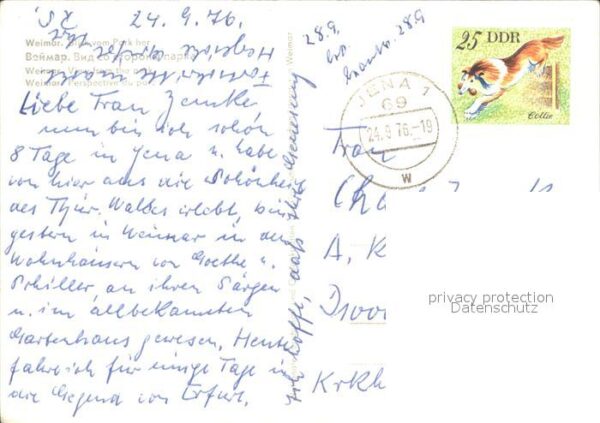 24.9.76.
Weimar. Blick vom Park her
Веймар. Вид со стороны парка
Liebe Frau
nun bin ich schon
8 Tage in Jena u. habe
von hier aus die Schönheit
des Thür. Waldes erlebt, bin
gestern in Weimar in den
Wohnhäusern von Goethe u.
Schiller an ihren Särgen
u. im allbekannten
Gartenhaus gewesen. Heute
fahre ich für einige Tage in
die Gegend von Erfurt.
Ich hoffe, daß Ihre Genesung
Weimar
28.9.
28.9
JENA 1
69
24.9.76.-19
w
25 DDR
Collie
Frau
Cha
A. K
Krkh
privacy protection
Datenschutz